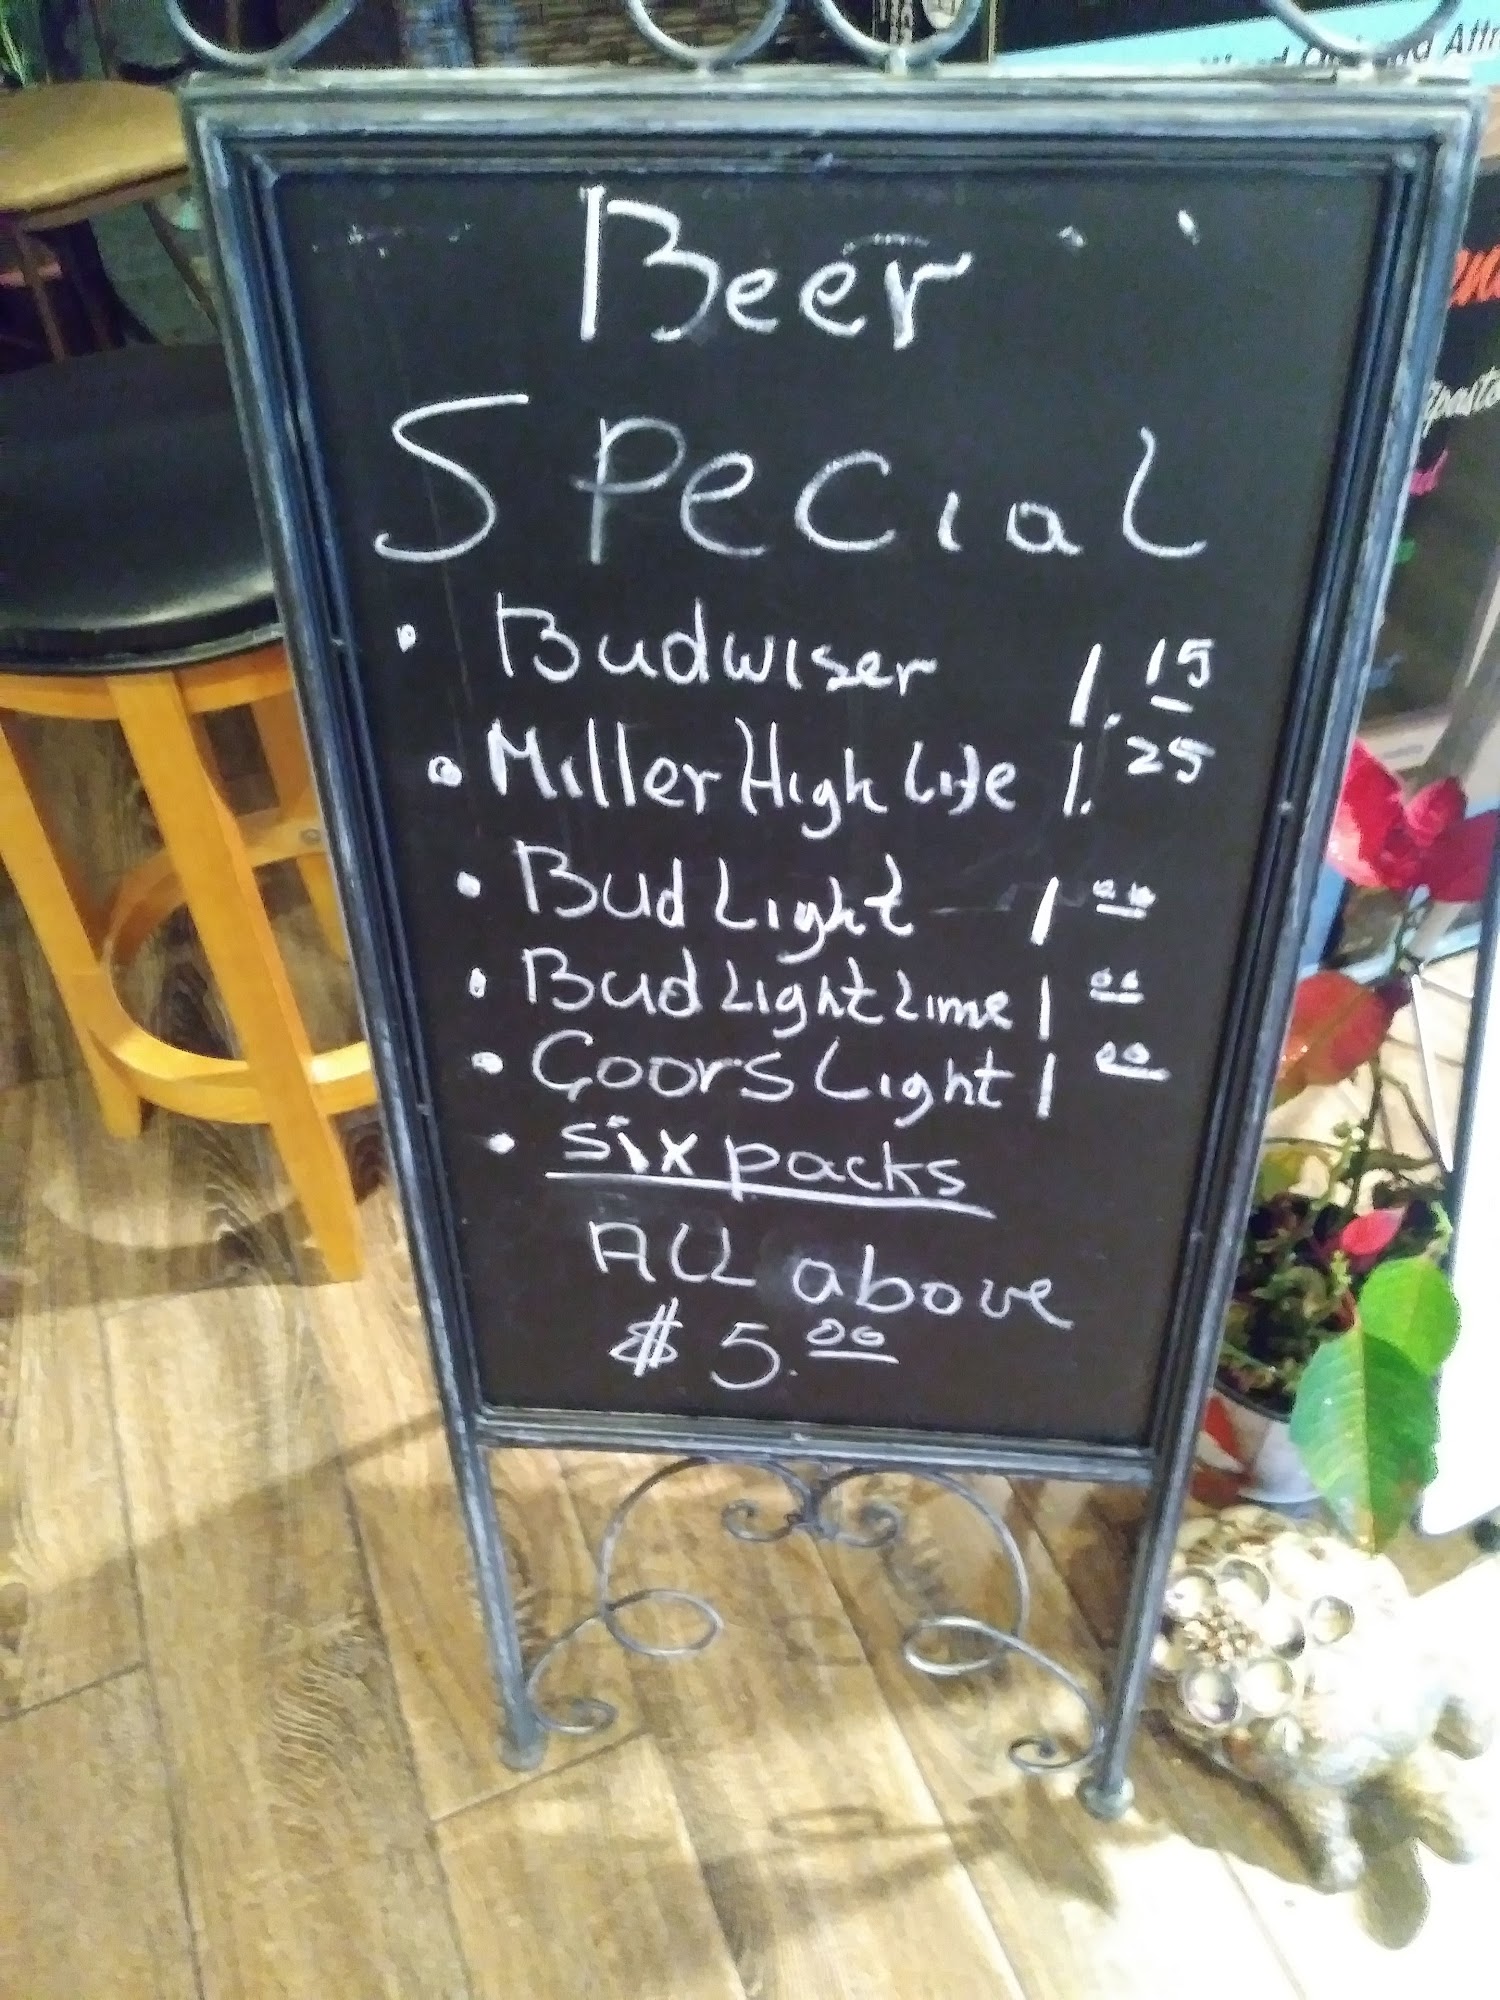 Beer
Special
• Budwiser 1.15
• Miller High Life 1.25
• Bud Light 1 00
• Bud Light Lime 1 00
• Coors Light 1 00
• six packs
ALL above
$ 5.00